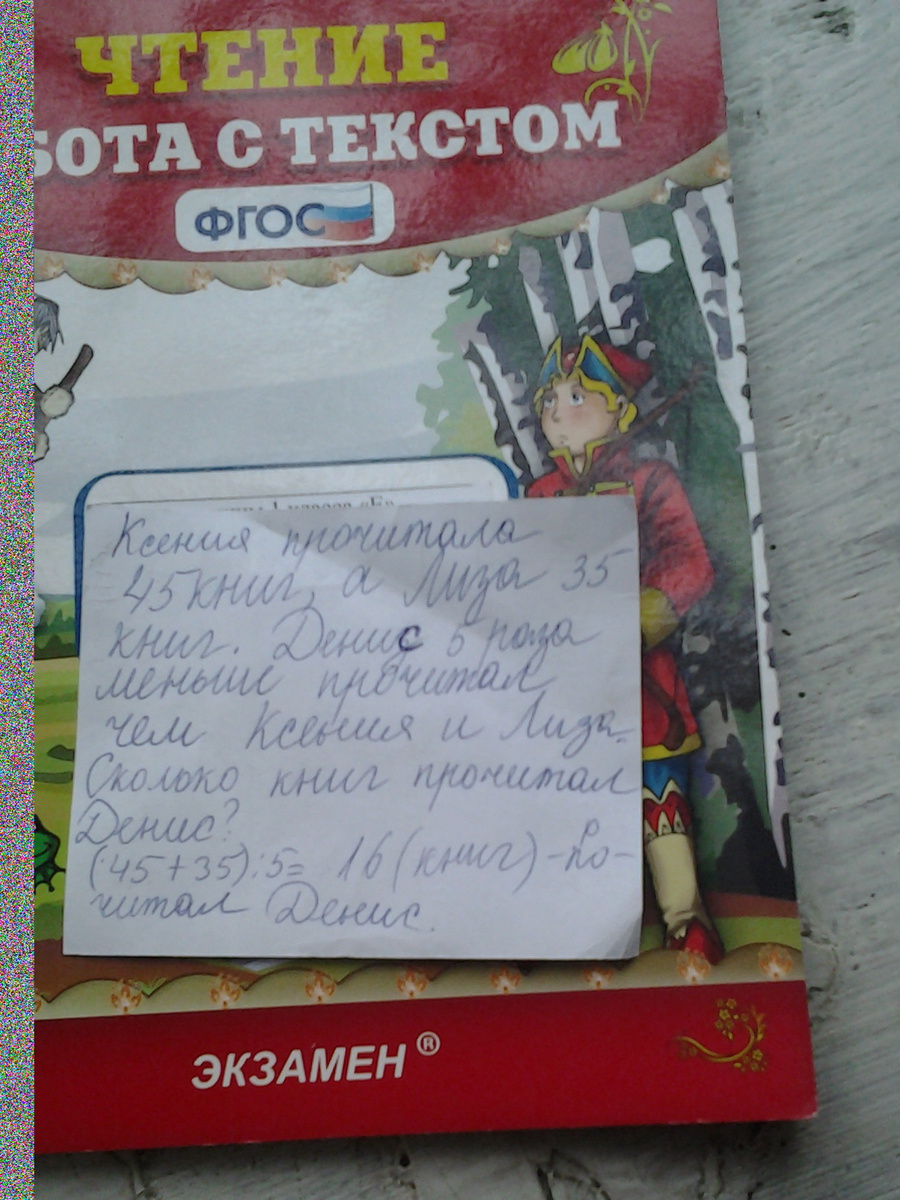 ЧТЕНИЕ
БОТА С ТЕКСТОМ
ФГОС
1 класса «Б»
Ксения прочитала
45 книг, а Лиза 35
книг. Денис 5 раза
меньше прочитал
чем Ксения и Лиза.
Сколько книг прочитал
Денис?
(45+35):5= 16 (книг) -
читал Денис.
ЭКЗАМЕН®